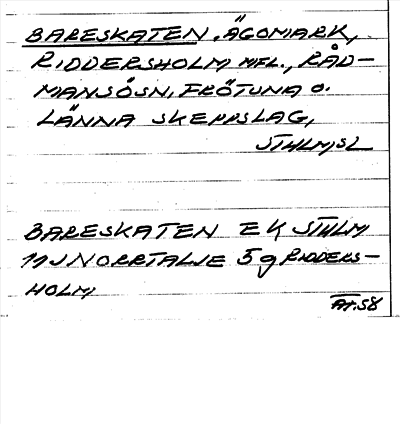 BARESKATEN, ÄGOMARK,
RIDDERSHOLM MFL., RÅD-
MANSÖSN, FRÖTUNA O.
LÄNNA SKEPPSLAG,
STHLMSL
BARESKATEN EK STHLM
11J NORRTALJE 5g RIDDERS-
HOLM
AT.58